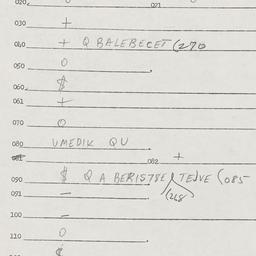 020. 021
030 +
040 + Q BALEBECET (270
050 O
060. $
061 +
070 O
080 VMEDIK QU
081 082 +
090 $ Q A BERISTSE, TEJVE (085
091 — (268
100 —
110 O
$